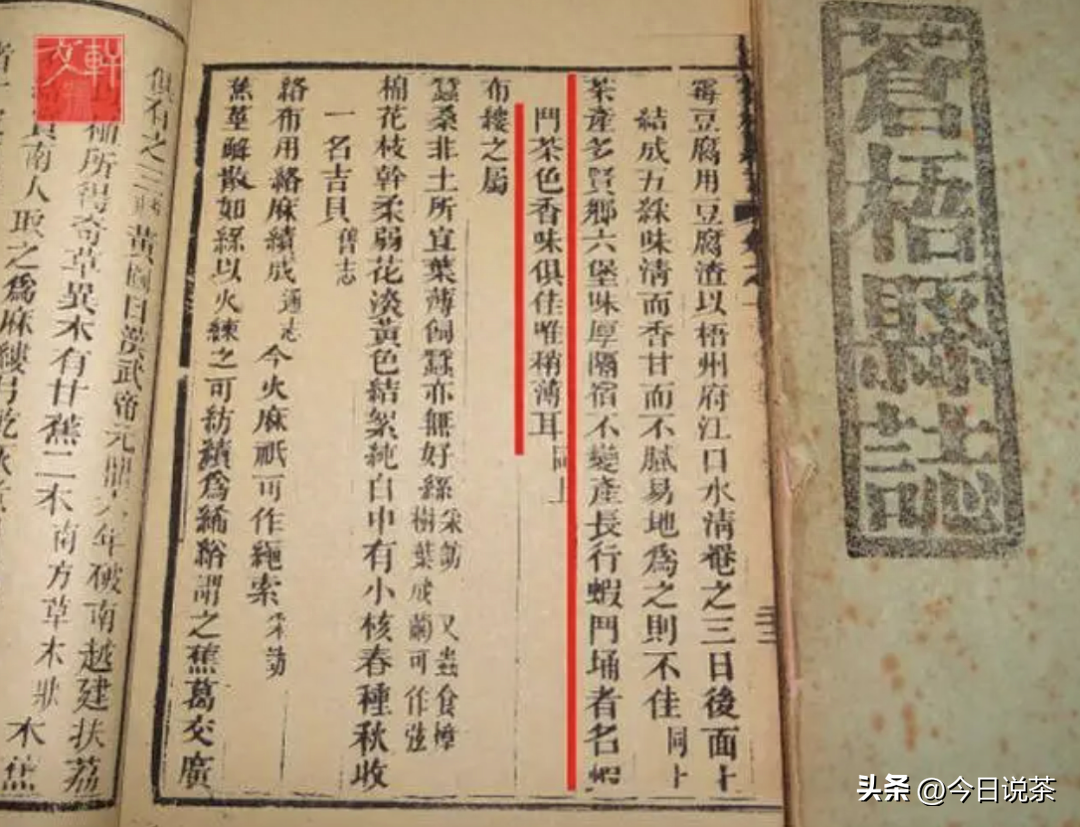 蒼梧縣誌
霉豆腐用豆腐渣以梧州府江口水清罨之三日後面上
結成五綵味清而香甘而不膩易地爲之則不佳同上
茶產多賢鄉六堡味厚隔宿不變產長行蝦鬥埇者名蝦
鬥茶色香味俱佳唯稍薄耳同上
布縷之屬
蠶桑非土所宜葉薄飼蠶亦無好絲采訪 又蟲食樟
樹葉成繭可作弦
棉花枝幹柔弱花淡黃色結絮純白中有小核春種秋收
一名吉貝舊志
絡布用絡麻績成通志今火麻祇可作繩索采訪
蕉莖解散如絲以火練之可紡績爲絺綌謂之蕉葛交廣
俱有之 黃 曰漢武帝元鼎六年破南越建扶荔
種所得奇草異木有甘蕉二木南方草木狀
南人取之爲麻縷
木蕉
文軒
头条 @今日说茶